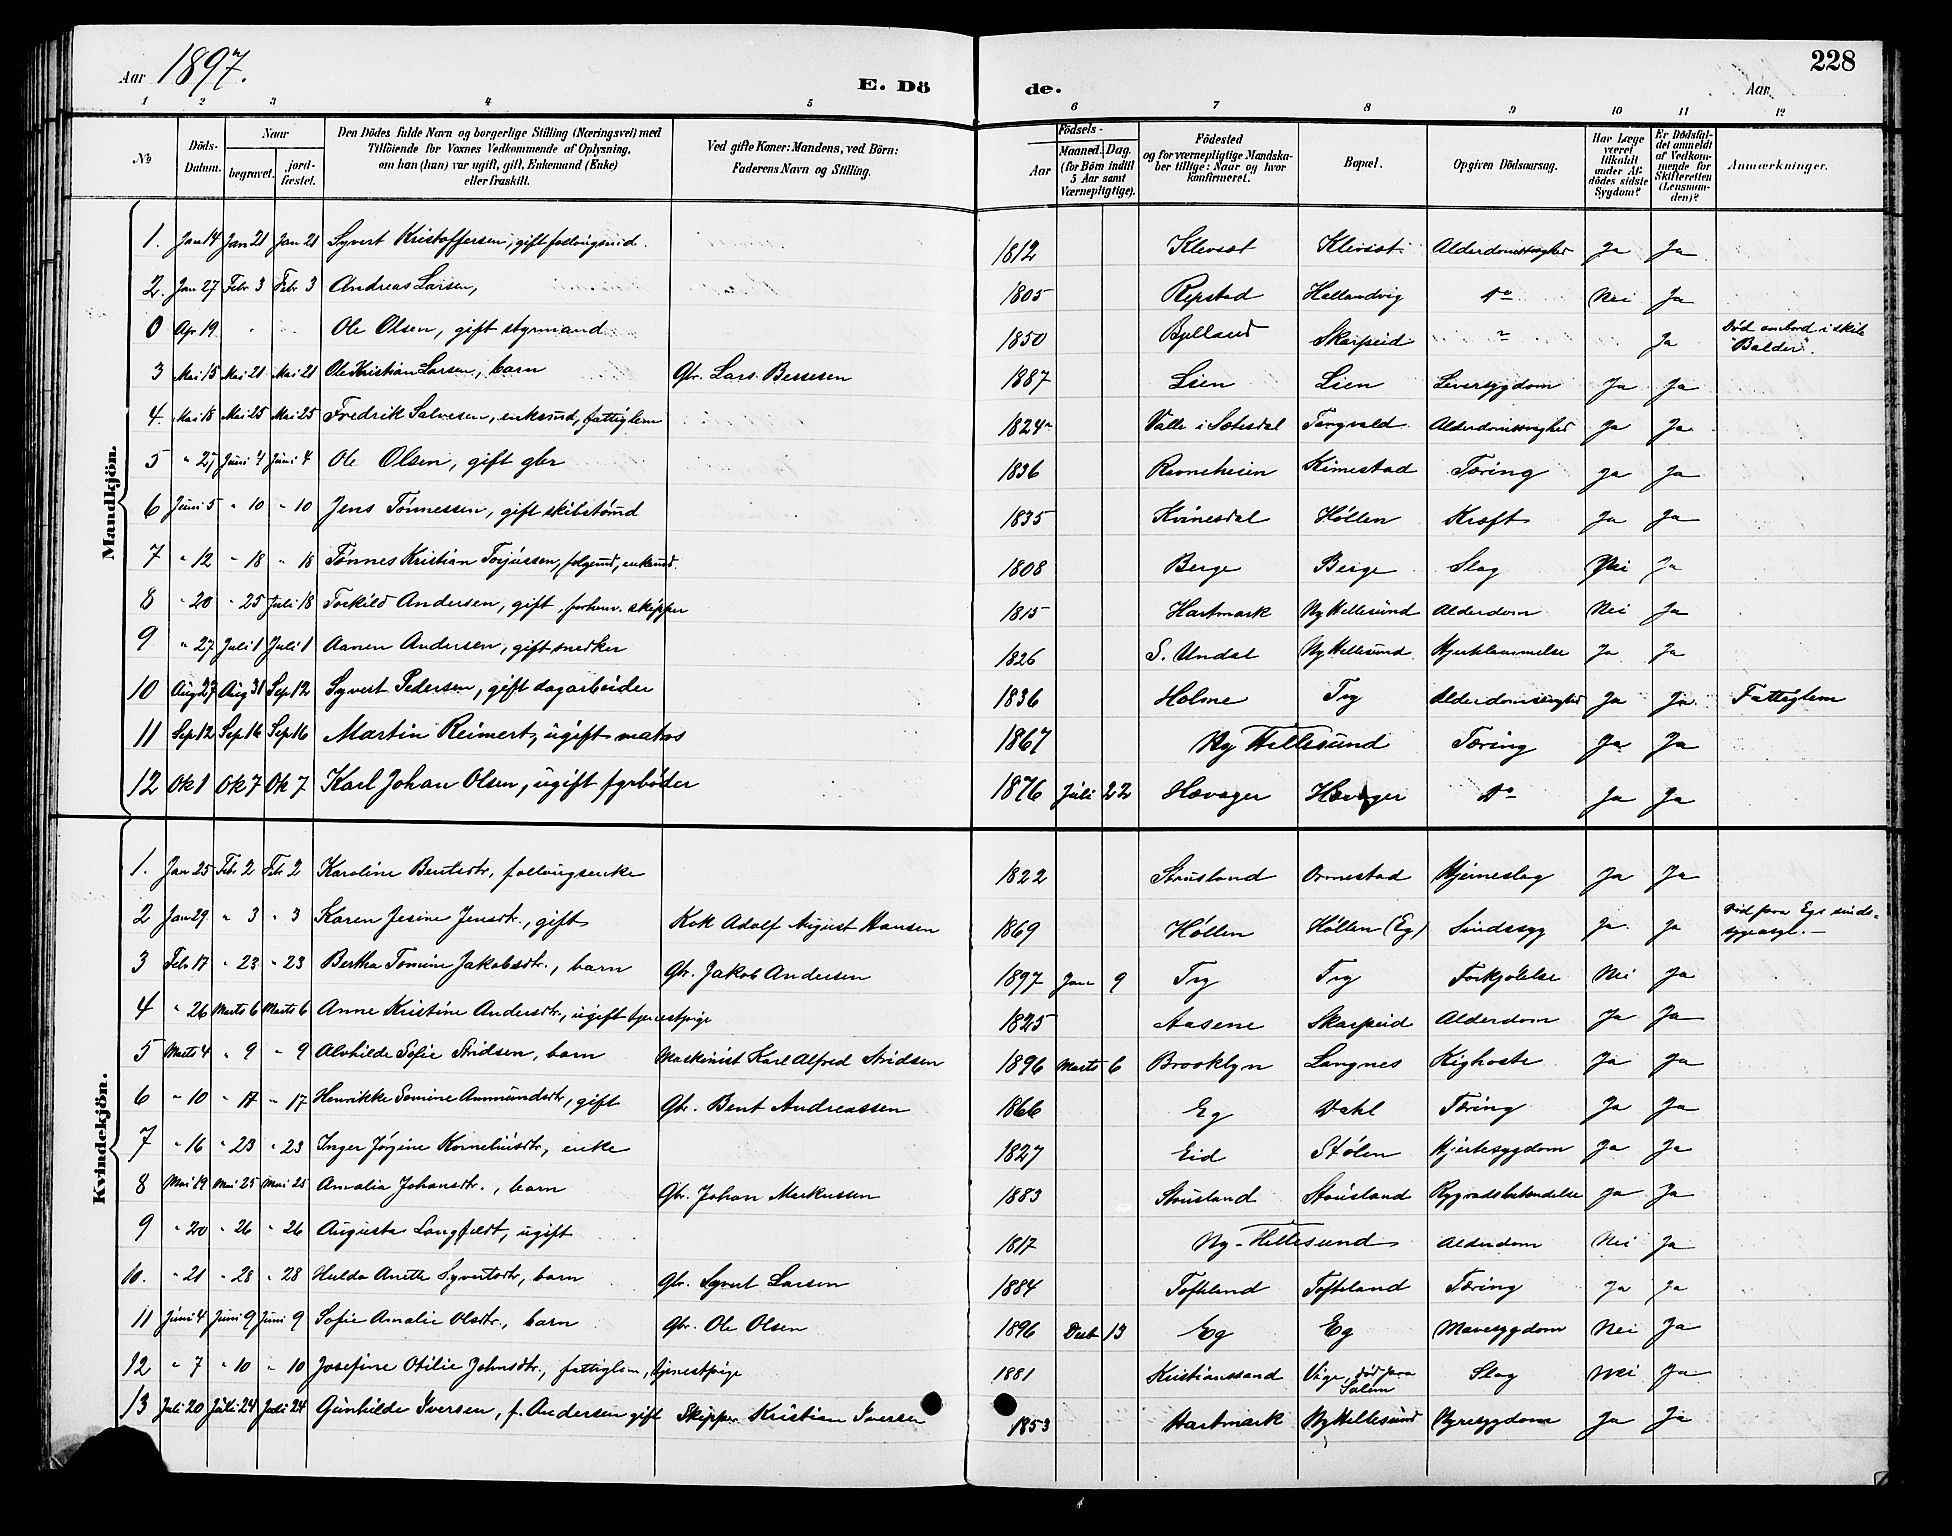 Aar 1897. E. Dö de. Aar 228
1 2 3 4 5 6 7 8 9 10 11 12
No Döds-Datum. Naar begravet. jordfæstet. Den Dödes fulde Navn og borgerlige Stilling (Næringsvei) med Tilföiende for Voxnes Vedkommende af Oplysning, om han (hun) var ugift, gift, Enkemand (Enke) eller fraskilt. Ved gifte Koner: Mandens, ved Börn: Faderens Navn og Stilling. Födsels- Aar Maaned. Dag. (for Børn indtil 5 Aar samt Værnepligtige). Födested og for værnepligtige Mandskaber tillige: Naar og hvor konfirmeret. Bopæl. Opgiven Dödsaarsag. Har Læge været tilkaldt under Afdödes sidste Sygdom? Er Dödsfaldet anmeldt af Vedkommende for Skifteretten (Lensmanden)? Anmærkninger.
Mandkjön.
1. Jan 14 Jan 21 Jan 21 Syvert Kristoffersen, gift 1812 Klevset Klevset Alderdomssvaghed Ja Ja
2. Jan 27 Febr 3 Febr 3 Andreas Larsen, 1805 Repstad Hallandvig do Nei Ja
0 Apr 19 Ole Olsen, gift styrmand 1850 Bylland Skarpeid " Ja Död ombord i skib "Balder".
3 Mai 15 Mai 21 Mai 21 Ole Kristian Larsen, barn Gbr. Lars Bessesen 1887 Lien Lien Leversygdom Ja Ja
4. Mai 18 Mai 25 Mai 25 Fredrik Salvesen, enkemd, fattiglem 1824 Valle i Sætesdal Tangvald Alderdomssvaghed Ja Ja
5 " 27 Juni 4 Juni 4 Ole Olsen, gift gbr 1836 Ravneheien Kimestad Tæring Ja Ja
6 Juni 5 " 10 " 10 Jens Tönnessen, gift skibstömd 1835 Kvinesdal Höllen Kræft Ja Ja
7 " 12 " 18 " 18 Tönnes Kristian Torjussen, folgemd, enkemd. 1808 Berge Berge Slag Nei Ja
8 " 20 " 25 Juli 18 Torkild Andersen, gift, forhenv. skipper 1815 Hartmark Ny Hellesund Alderdom Nei Ja
9 " 27 Juli 1 Juli 1 Aanen Andersen, gift snedker 1826 S. Undal Ny Hellesund Hjertelammelse Ja Ja
10 Aug 27 Aug 31 Sep 12 Syvert Pedersen, gift dagarbeider 1836 Holme Try Alderdomssvaghed Ja Ja Fattiglem
11 Sep 12 Sep 16 Sep 16 Martin Reimert, ugift matros 1867 Ny Hellesund Tæring Ja Ja
12 Ok 1 Ok 7 Ok 7 Karl Johan Olsen, ugift fyrböder 1876 Juli 22 Havager Havager do Ja Ja
Kvindekjön.
1. Jan 25 Febr 2 Febr 2 Karoline Bentsdtr, enke 1822 Stausland Ormestad Hjerneslag Ja Ja
2 Jan 29 " 3 " 3 Karen Jesine Jensdtr., gift Kok Adolf August Hansen 1869 Höllen Höllen (Eg) Sindssyg Ja Ja Död paa Egs sindssygeasyl.
3 Febr 17 " 23 " 23 Bertha Tomine Jakobsdtr., barn Gbr. Jakob Andersen 1897 Jan 9 Try Try Forkjölelse Nei Ja
4 " 26 Marts 6 Marts 6 Anne Kristine Andersdtr, ugift tjenestpige 1825 Aasene Skarpeid Alderdom Ja Ja
5 Marts 4 " 9 " 9 Alvhilde Sofie Aridsen, barn Maskinist Karl Alfred Aridsen 1896 Marts 6 Brooklyn Langnes Kighoste Ja Ja
6 " 10 " 17 " 17 Henrikke Tomine Ammundsdtr, gift Gbr. Bent Andreassen 1866 Eg Vahl Tæring Ja Ja
7 " 16 " 23 " 23 Inger Jörgine Korneliusdtr, enke 1827 Eid Stölen Hjertesygdom Ja Ja
8 Mai 19 Mai 25 Mai 25 Amalia Johansdtr., barn Gbr. Johan Markussen 1883 Stausland Stausland Rygradsbetændelse Ja Ja
9 " 20 " 26 " 26 Augusta Langfeldt, ugift 1817 Ny-Hellesund Alderdom Nei Ja
10. " 21 " 28 " 28 Hulda Anette Syvertsdtr, barn Gbr. Syvert Larsen 1884 Tofteland Tofteland Tæring Ja Ja
11 Juni 4 Juni 9 Juni 9 Sofie Amalie Olsdtr., barn Gbr. Ole Olsen 1896 Dcb 13 Eg Eg Mavesygdom Nei Ja
12 " 7 " 10 " 10 Josefine Otilie Johnsdtr., fattiglem, tjenestpige 1881 Kristianssand Vige, död paa Salem Slag Nei Ja
13 Juli 20 Juli 24 Juli 24 Gunhilde Iversen, f. Andersen gift Skipper Kristian Iversen 1853 Hartmark Ny Hellesund Nyresygdom Ja Ja